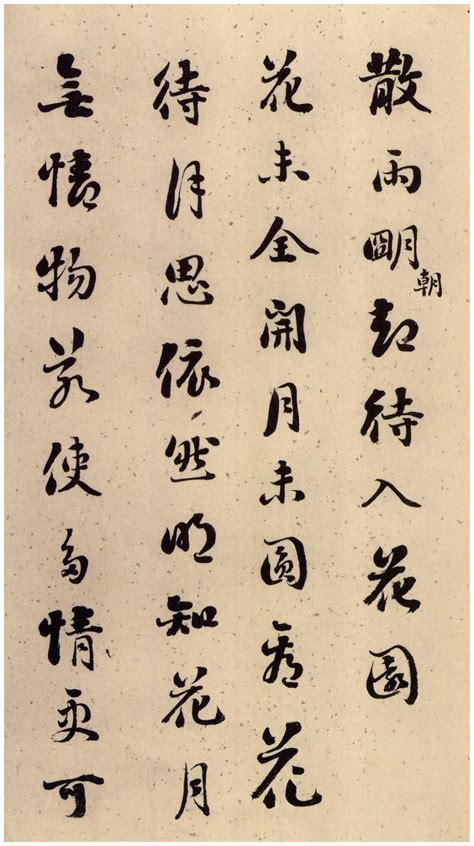 散雨明朝却待入花園
花未全開月未圓看花
待月思依然明知花月
無情物若使多情更可